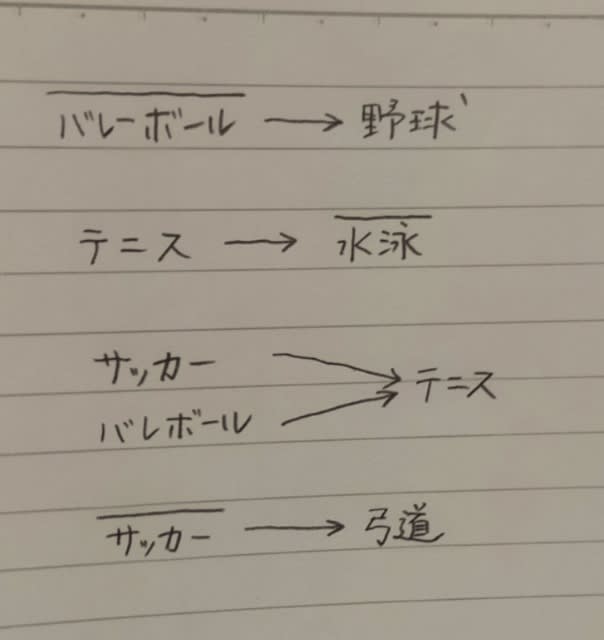 バレーボール → 野球
テニス → 水泳
サッカー
バレボール → テニス
サッカー → 弓道